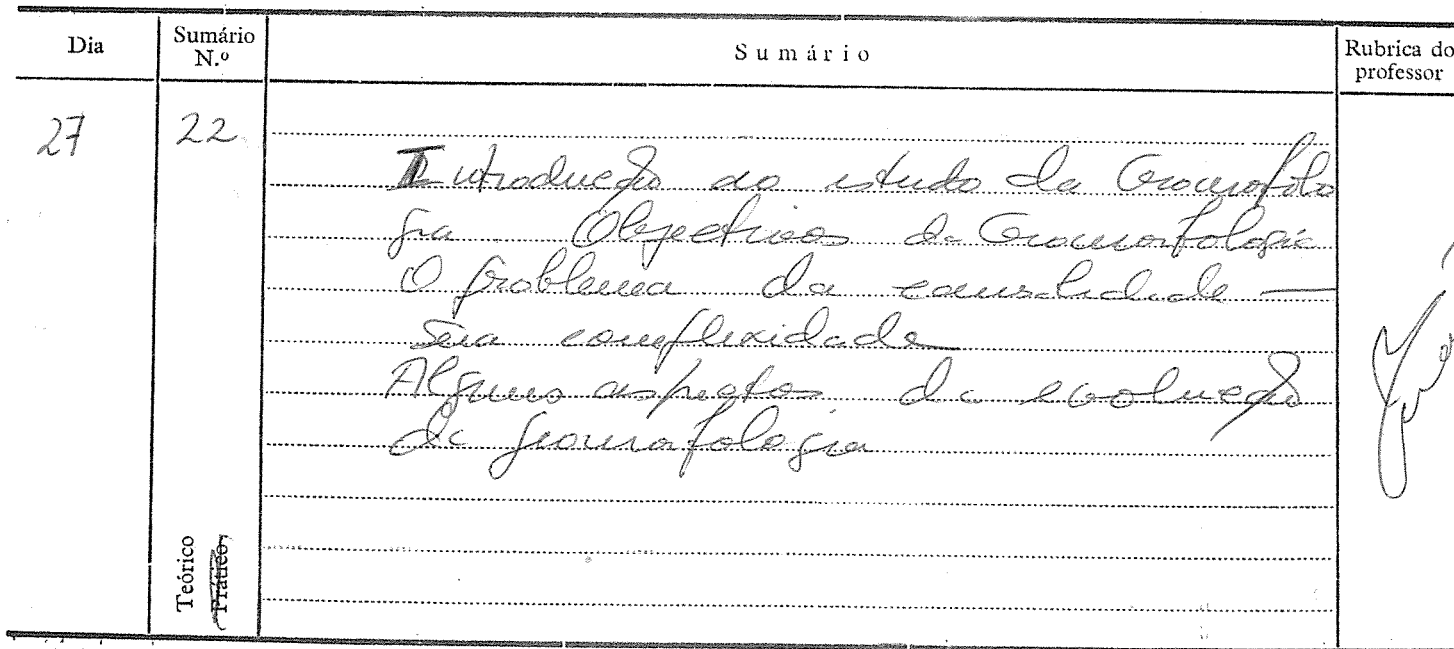 Dia
Sumário N.º
Sumário
Rubrica do professor
27
22
Introdução ao estudo da Geomorfolo
gia Objectivos da Geomorfologia
O problema da causalidade —
Sua complexidade
Alguns aspectos da evolução
da geomorfologia
Teórico
Prático